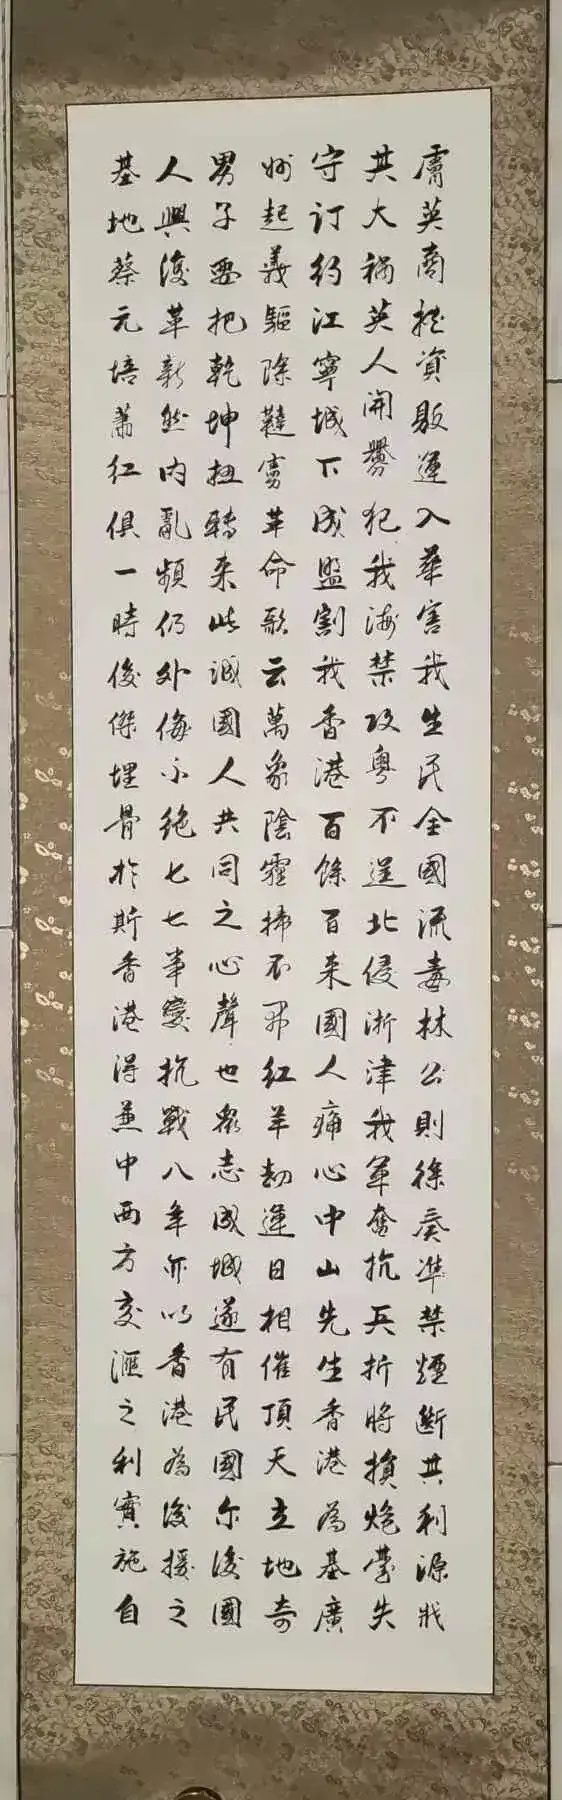 膚英商挺資販運入華害我生民全國流毒林公則徐奏準禁煙斷其利源戕
其大禍英人開釁犯我海禁攻粵不逞北侵浙津我軍奮抗兵折將損炮臺失
守訂約江寧城下成盟割我香港百餘百來國人痛心中山先生香港為基廣
州起義驅除韃虜革命歌云萬象陰霾掃不開紅羊劫運日相催頂天立地奇
男子要把乾坤扭轉來此誠國人共同之心聲也眾志成城遂有民國尔後國
人興復革新然内亂頻仍外侮不絕七七事變抗戰八年亦以香港為後援之
基地蔡元培蕭紅俱一時俊傑埋骨於斯香港得兼中西方交滙之利實施自